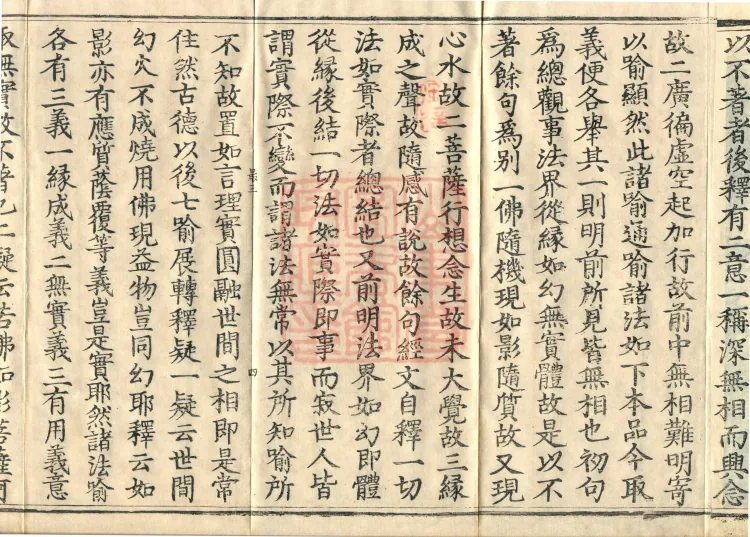 以不著者後釋有二意一稱深無相而興念
故二廣徧虛空起加行故前中無相難明寄
以喻顯然此諸喻通喻諸法如下本品今取
義便各舉其一則明前所見皆無相也初句
爲總觀事法界從緣如幻無實體故是以不
著餘句爲別一佛隨機現如影隨質故又現
心水故二菩薩行想念生故未大覺故三緣
成之聲故隨感有說故餘句經文自釋一切
法如實際者總結也又前明法界如幻即體
從緣後結一切法如實際即事而寂世人皆
謂實際不變而謂諸法無常以其所知喻所
不知故置如言理實圓融世間之相即是常
住然古德以後七喻展轉釋疑一疑云世間
幻火不成燒用佛現益物豈同幻耶釋云如
影亦有應質蔭覆等義豈是實耶然諸法喻
各有三義一緣成義二無實義三有用義意
取無實故不著也二疑云若佛如影菩薩何